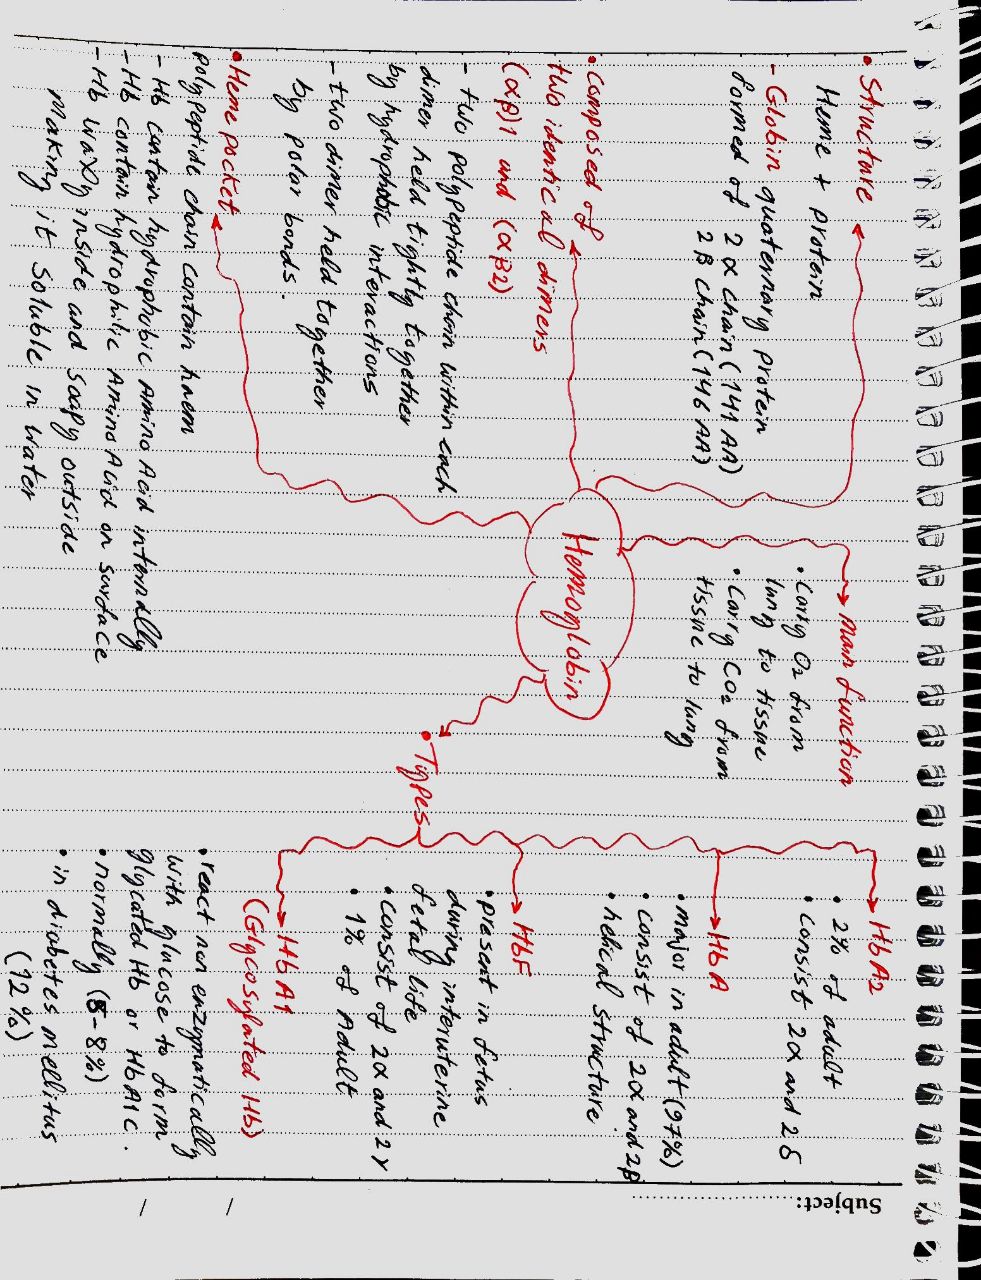 Subject:
• Structure
Heme + protein
- Globin quaternary protein
formed of 2α chain (141 AA)
2β chain (146 AA)
• composed of
two identical dimers
(αβ)1 and (αβ2)
- two polypeptide chain within each
dimer held tightly together
by hydrophobic interactions
- two dimer held together
by polar bonds.
• Heme pocket
polypeptide chain contain haem
- Hb contain hydrophobic Amino Acid internally
- Hb contain hydrophilic Amino Acid on surface
- Hb waxy inside and soapy outside
making it soluble in water
Hemoglobin
main function
• Carry O2 from
lung to tissue
• Carry CO2 from
tissue to lung
• Types
HbA2
• 2% of adult
• consist 2α and 2δ
HbA
• major in adult (97%)
• consist of 2α and 2β
• helical structure
HbF
• present in fetus
during interuterine
fetal life
• consist of 2α and 2γ
• 1% of Adult
HbA1
(Glycosylated Hb)
• react non enzymatically
with glucose to form
glycated Hb or HbA1c.
• normally (5-8%)
• in diabetes mellitus
(12%)
/ /